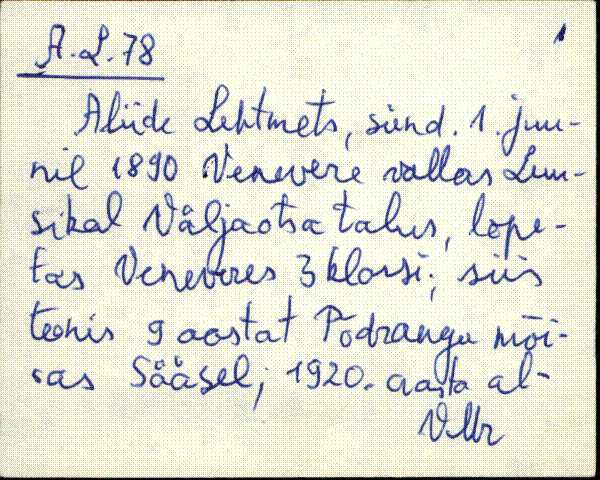 A. L. 78
1
Aliide Lehtmets, sünd. 1. juu-
nil 1890 Venevere vallas Luu-
sikal Väljaotsa talus, lõpe-
tas Veneveres 3 klassi; siis
teenis 9 aastat Põdrangu mõi-
sas Sääsel; 1920. aasta al-